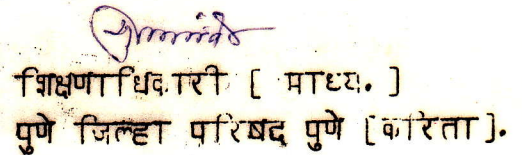 शिक्षणाधिकारी [ माध्य. ]
पुणे जिल्हा परिषद पुणे [करिता ].